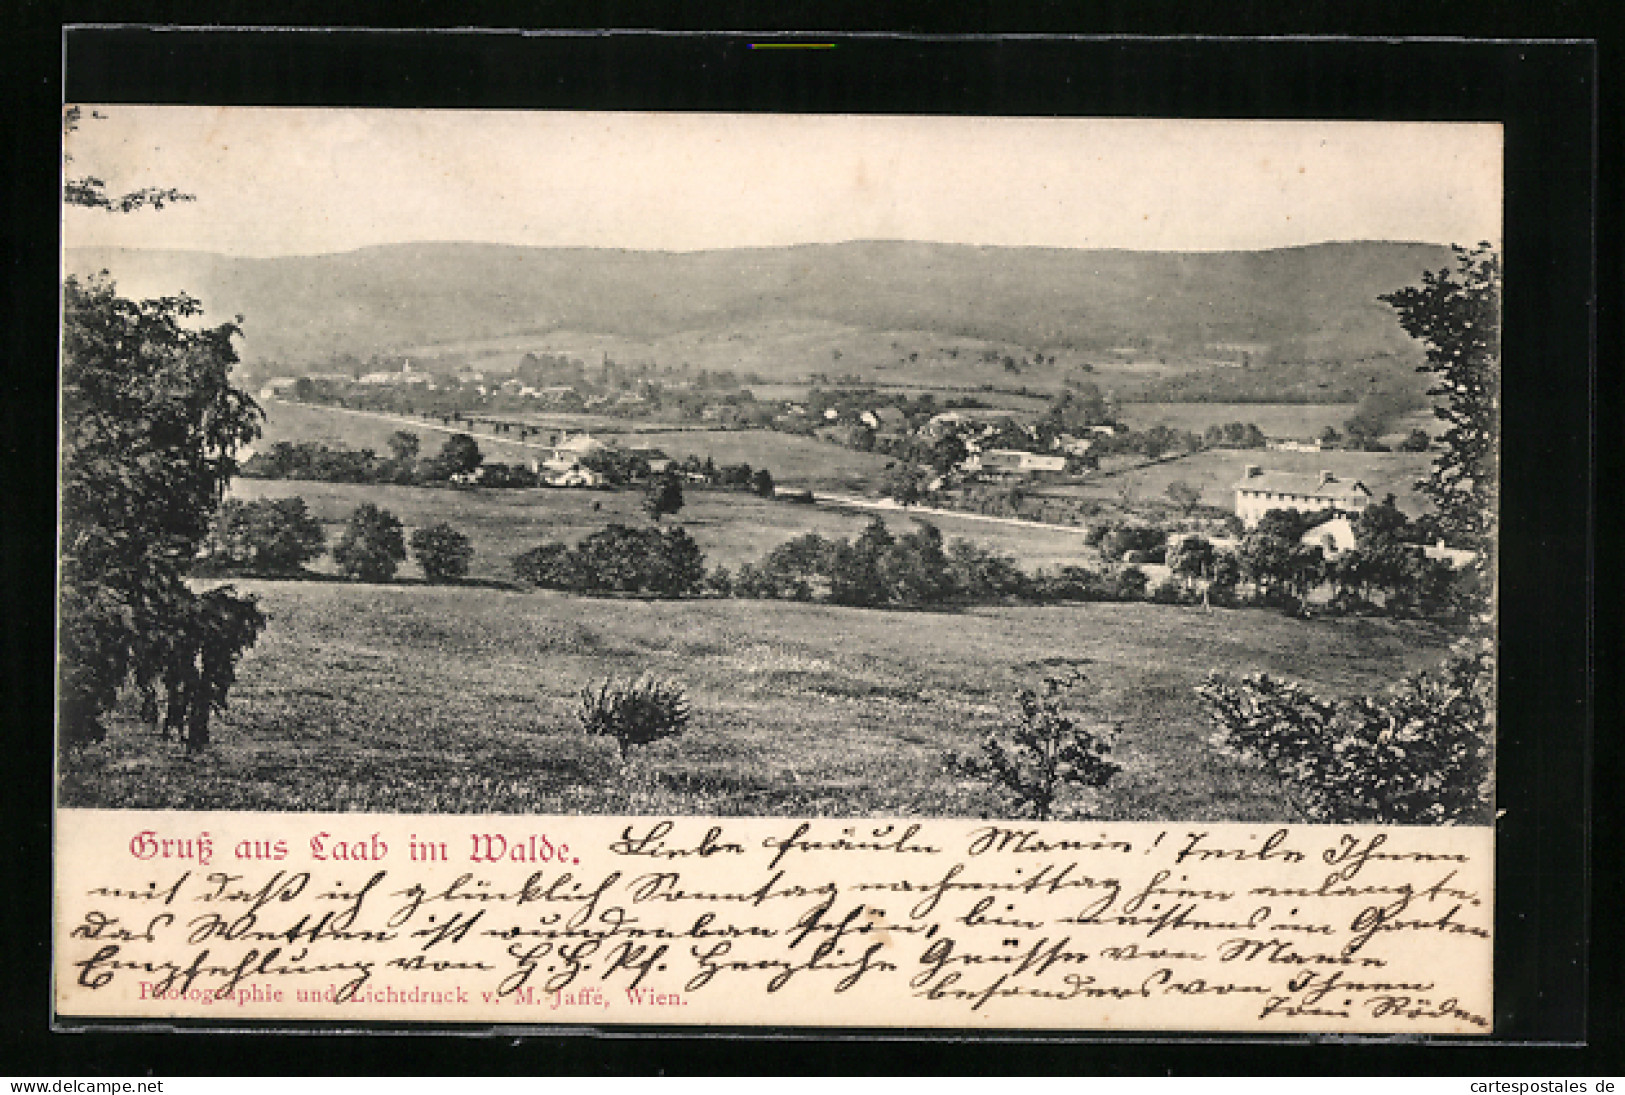 Gruß aus Laab im Walde.
Liebe Fräuln Marie! Teile Ihnen
mit daß ich glücklich Sonntag nachmittag hier anlangte.
Das Wetter ist wunderbar schön, bin meistens im Garten
Empfehlung von H. H. Pf. Herzliche Grüsse von Marie
besonders von Ihnen
Toni
Photographie und Lichtdruck v. M. Jaffé, Wien.
oldthing.com
cartespostales de